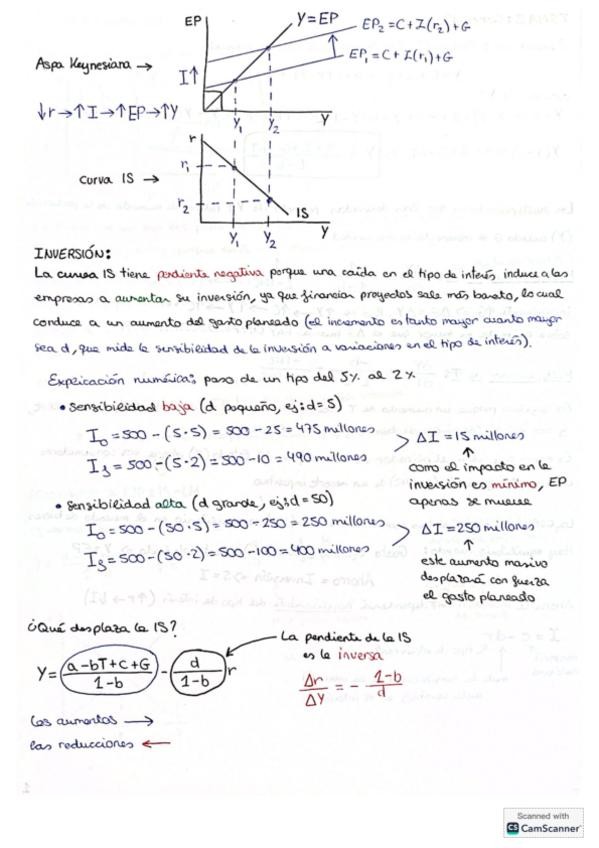 EP
Y=EP
EP₂=C+I(r₂)+G
EP₁=C+I(r₁)+G
Aspa Keynesiana →
I↑
↓r→↑I→↑EP→↑Y
Y₁ Y₂ Y
r
r₁
Curva IS →
r₂
IS
Y₁ Y₂ Y
INVERSIÓN:
La curva IS tiene pendiente negativa porque una caída en el tipo de interés induce a las
empresas a aumentar su inversión, ya que financiar proyectos sale más barato, lo cual
conduce a un aumento del gasto planeado (el incremento es tanto mayor cuanto mayor
sea d, que mide la sensibilidad de la inversión a variaciones en el tipo de interés).
Explicación numérica: paso de un tipo del 5% al 2%
• Sensibilidad baja (d pequeño, ej: d=5)
I₀=500-(5·5)=500-25=475 millones
I₁=500-(5·2)=500-10=490 millones
> ΔI=15 millones
↑
como el impacto en la
inversión es mínimo, EP
apenas se mueve
• Sensibilidad alta (d grande, ej: d=50)
I₀=500-(50·5)=500-250=250 millones
I₁=500-(50·2)=500-100=400 millones
> ΔI=250 millones
↑
este aumento masivo
desplazará con fuerza
el gasto planeado
¿Qué desplaza la IS?
Y=(a-bT+C+G / 1-b)-(d / 1-b)r
La pendiente de la IS
es la inversa
Δr/ΔY = - 1-b/d
Los aumentos →
las reducciones ←
1
Scanned with
CS CamScanner